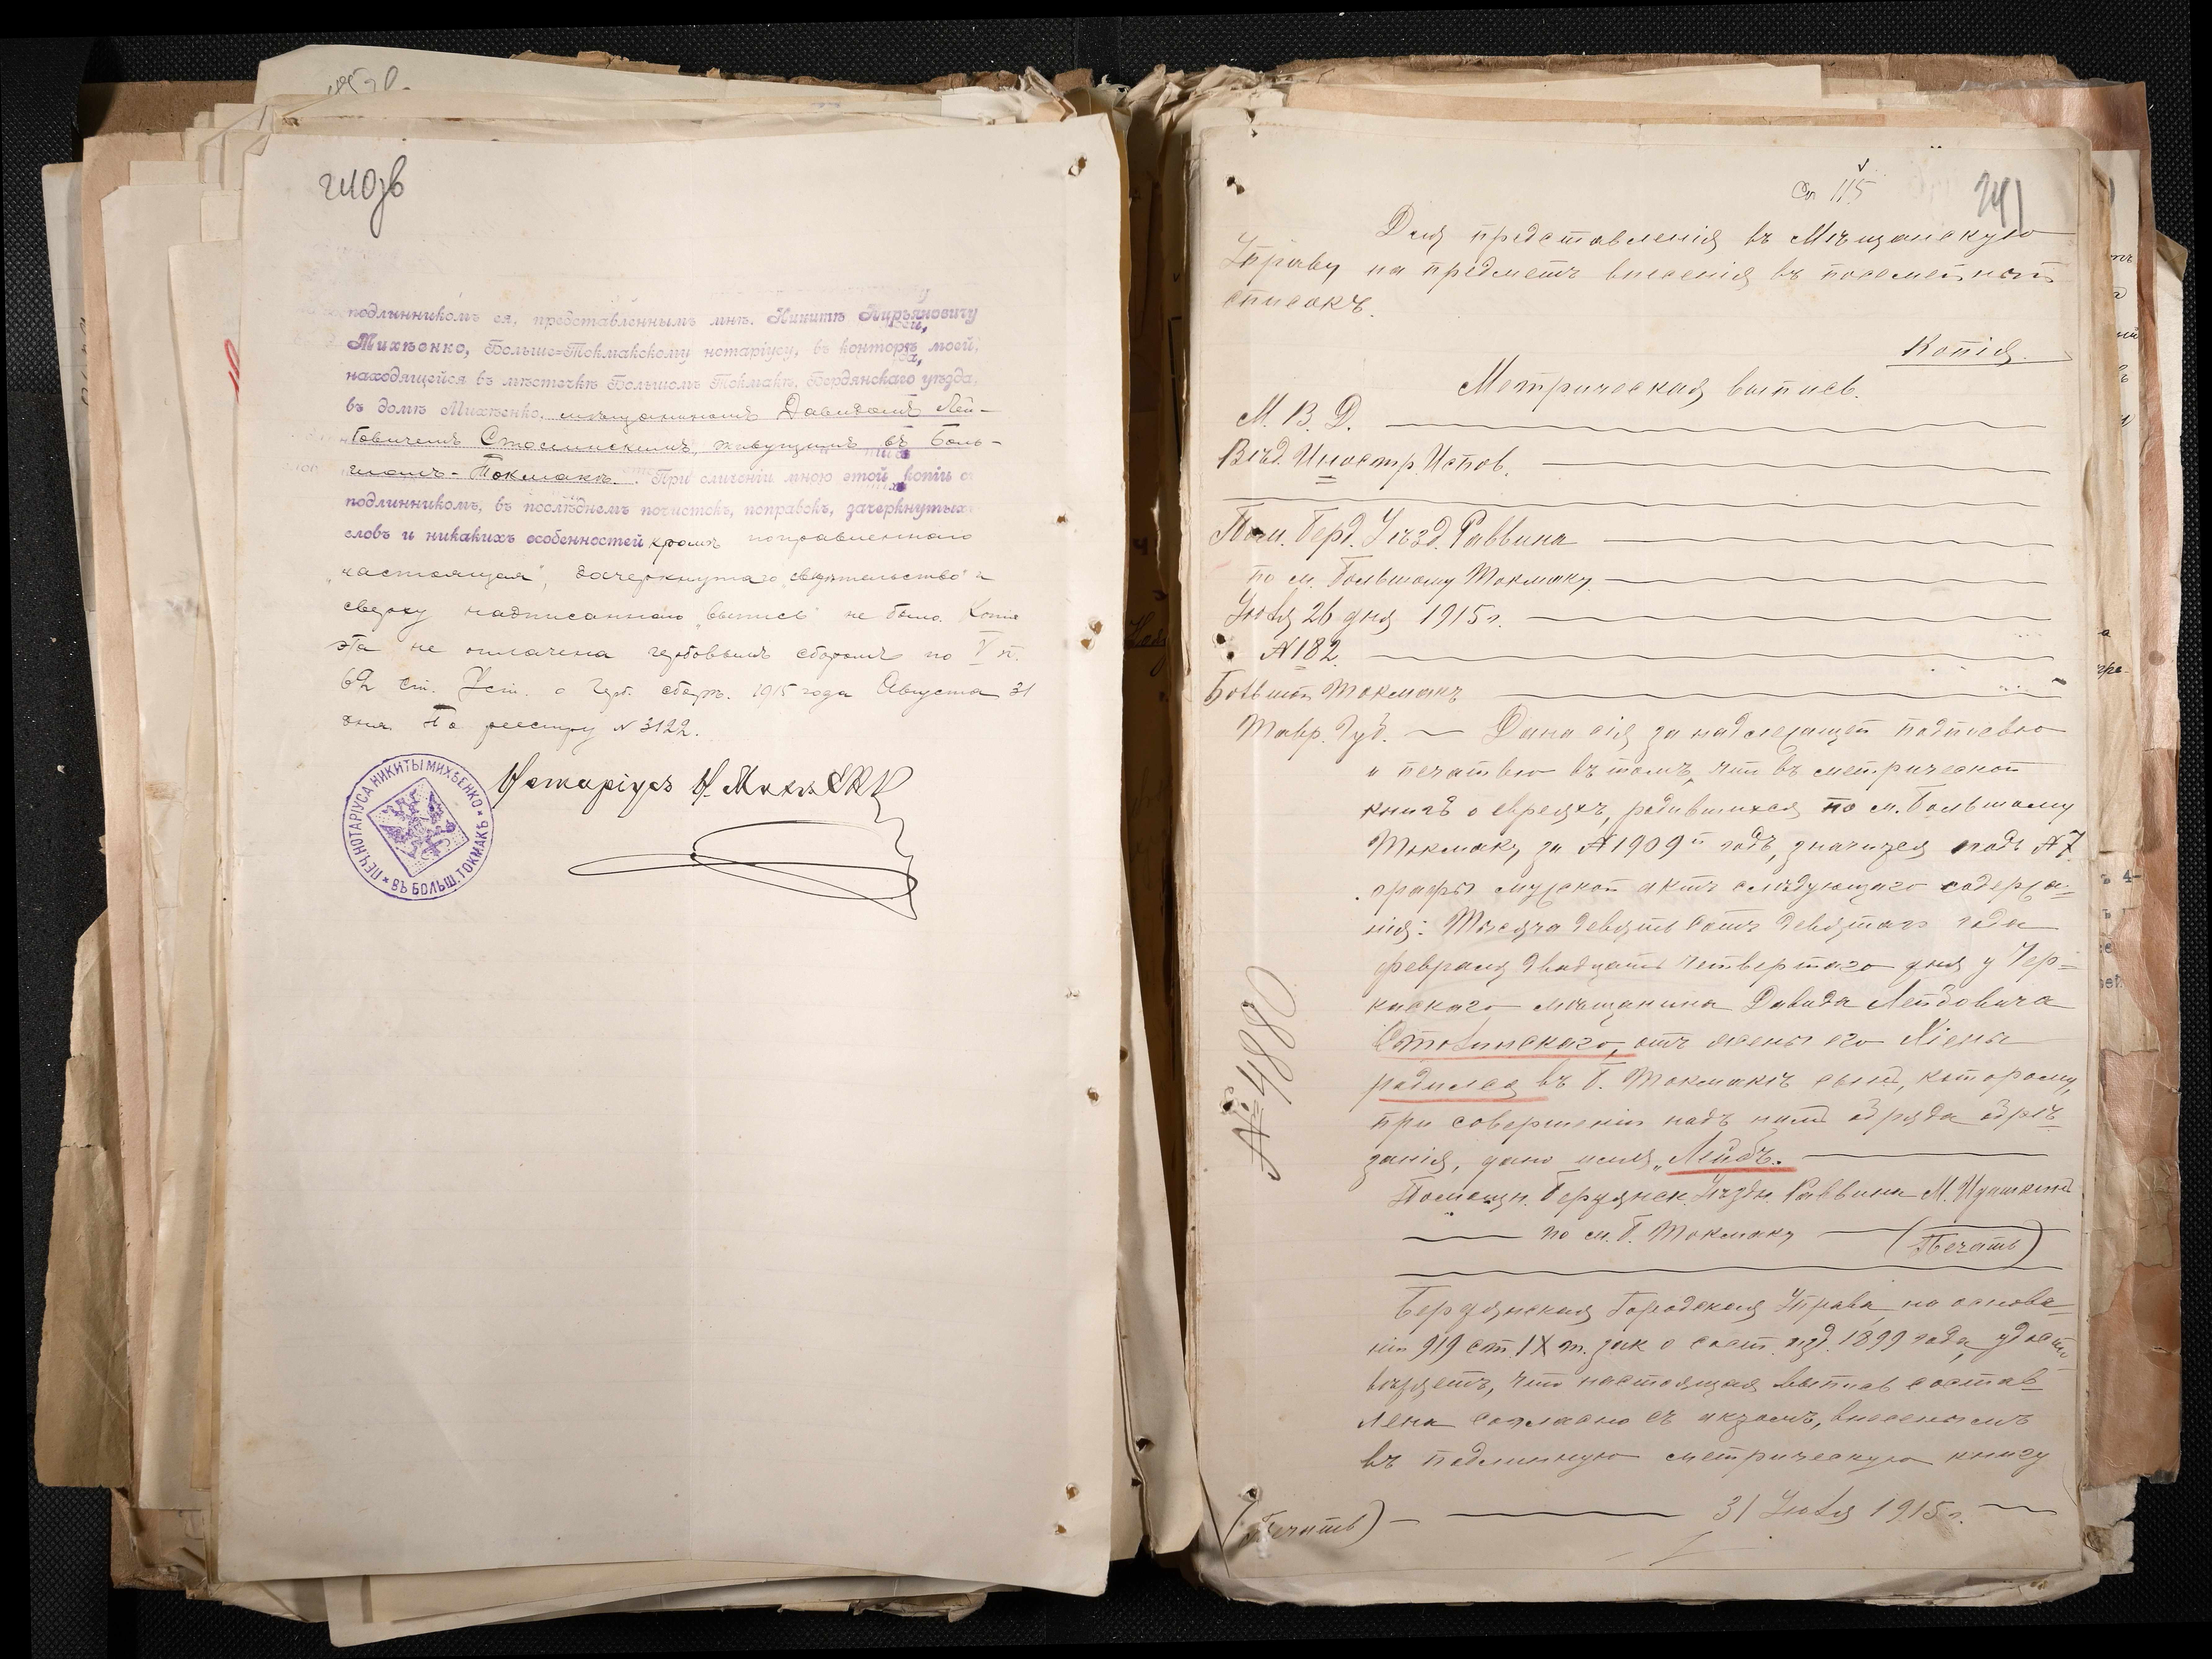 240зв
подлинникомъ ея, представленнымъ мнѣ, Никитѣ Кирьяновичу
Михѣенко, Больше-Токмакскому нотаріусу, въ конторѣ моей,
находящейся въ мѣстечкѣ Большомъ Токмакѣ, Бердянскаго уѣзда,
въ домѣ Михѣенко, мѣщаниномъ Давидомъ Лей-
бовичемъ Столинскимъ, живущимъ въ Боль-
шомъ-Токмакѣ. При сличеніи мною этой копіи съ
подлинникомъ, въ послѣднемъ почистокъ, поправокъ, зачеркнутыхъ
словъ и никакихъ особенностей кромѣ поправленнаго
„настоящая", зачеркнутаго „свидѣтельство" и
сверху надписаннаго „выпись" не было. Копія
эта не оплачена гербовымъ сборомъ по V п.
62 ст. Уст. о герб. сборѣ. 1915 года Августа 31
дня. По реестру N 3122.
Нотаріусъ Н. Михѣенко
ПЕЧ. НОТАРІУСА НИКИТЫ МИХѢЕНКО * ВЪ БОЛЬШ. ТОКМАКѢ *
Ст 115
241
Для представленія въ Мѣщанскую
Управу на предметъ внесенія въ посемейный
списокъ.
Копія.
Метрическая выпись.
М. В. Д.
Вѣд. Иностр. Испов.
Пом. Берд. Уѣзд. Раввина
по м. Большому Токмаку.
Іюля 26 дня 1915 г.
N 182.
Большой Токмакъ
Тавр. Губ. — Дана сія за надлежащей подписью
и печатью въ томъ, что въ метрической
книгѣ о евреяхъ, родившихся по м. Большому
Токмаку за 1909й годъ, значится подъ N 7
графы мужской актъ слѣдующаго содержа=
нія: Тысяча девятьсотъ девятаго года
февраля двадцать четвертаго дня у Чер=
каскаго мѣщанина Давида Лейбовича
Столинскаго, отъ жены его Хіены
родился въ Б. Токмакѣ сынъ, которому,
при совершеніи надъ нимъ обряда обрѣ=
занія, дано имя „Лейбъ.
Помощн. Бердянск. Уѣздн. Раввина М. Идашкинъ
по м. Б. Токмаку (Печать)
Бердянская Городская Управа, на основа=
ніи 919 ст. IX т. зак о сост. изд. 1899 года, удосто
вѣряетъ, что настоящая выпись состав=
лена согласно съ актомъ, внесеннымъ
въ подлинную метрическую книгу
(Печать) — 31 Іюля 1915 г.
№ 4880